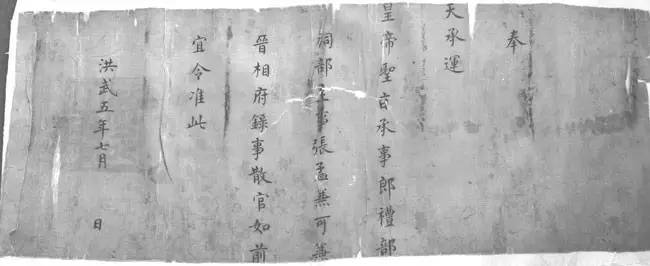 奉
天承運
皇帝聖旨承事郎禮部
祠部主事張孟兼可兼
晉相府錄事散官如前
宜令准此
洪武五年七月 日